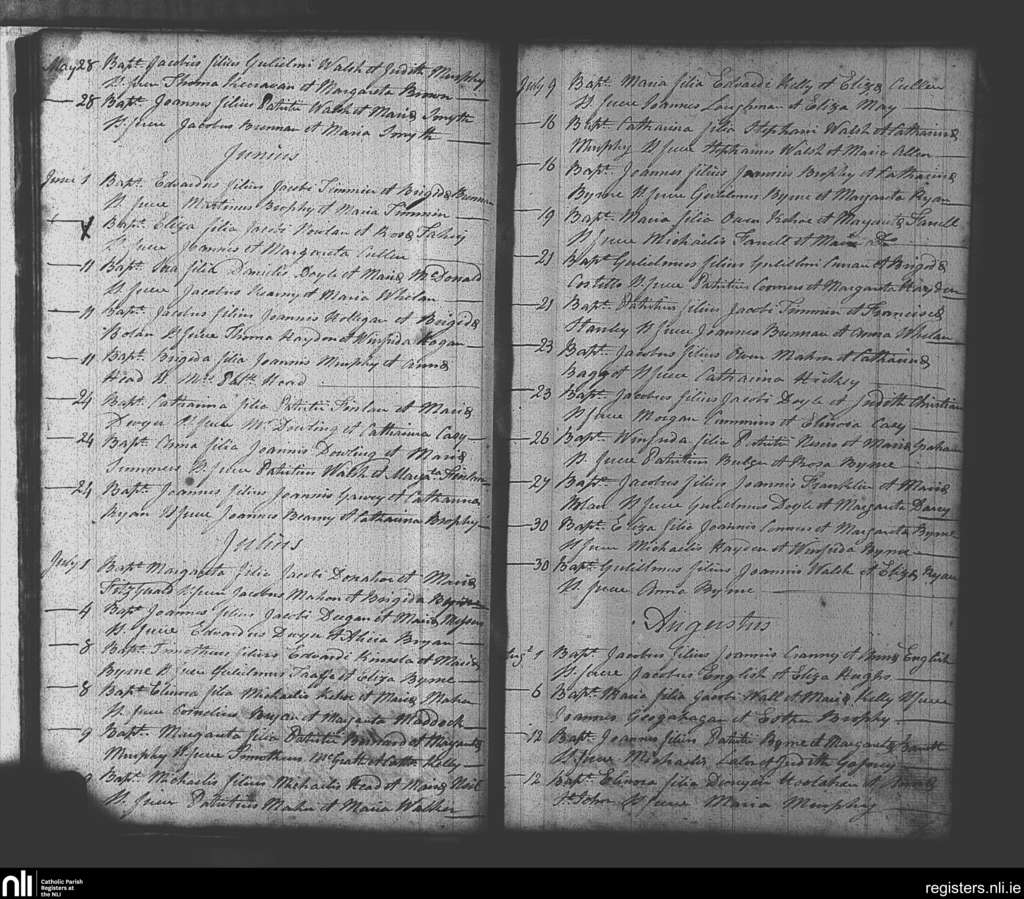 May 28 Bapt. Jacobus filius Gulielmi Walsh et Judith Murphy
P. fuere Thoma Keeravan et Margareta Brown
28 Bapt. Joannes filius Patritii Walsh et Mariæ Smyth
P. fuere Jacobus Brennan et Maria Smyth
Junius
June 1 Bapt. Edvardus filius Jacobi Timmin et Brigidæ Brennan
P. fuere Martinus Brophy et Maria Timmin
Bapt. Eliza filia Jacobi Noulan et Rosæ Fahy
P. fuere Joannis et Margareta Cullen
11 Bapt. filia Danielis Doyle et Mariæ McDonald
P. fuere Jacobus Kearny et Maria Whelan
11 Bapt. Jacobus filius Joannis Holligan et Brigidæ
Nolan P. fuere Thoma Haydon et Winfrida Hogan
11 Bapt. Brigida filia Joannis Murphy et Annæ
Head P. Mrs. Head
24 Bapt. Catharina filia Patritii Finlan et Mariæ
Dwyer P. fuere Dowling et Catharina Casy
24 Bapt. Anna filia Joannis Dowling et Mariæ
Summers P. fuere Patritius Walsh et Margta Finlan
24 Bapt. Joannes filius Joannis Garvy et Catharinæ
Ryan P. fuere Joannes Bearny et Catharina Brophy
Julius
July 1 Bapt. Margareta filia Jacobi Donahoe et Mariæ
FitzGerald P. fuere Jacobus Mahon et Brigida
4 Bapt. Joannes filius Jacobi Deegan et Mariæ
P. fuere Edvardus Dwyer et Alicia Bryan
8 Bapt. Timotheus filius Edvardi Kinsela et Mariæ
Byrne P. fuere Gulielmus Taaffe et Eliza Byrne
8 Bapt. Elenora filia Michaelis Kehoe et Mariæ Mahon
P. fuere Cornelius Bryan et Margareta Maddock
9 Bapt. Margareta filia Patritii Bernard et Margaretæ
Murphy P. fuere Timotheus McGratt et Cath. Kelly
9 Bapt. Michaelis filius Michaelis Head et Mariæ Neil
P. fuere Patritius Maher et Maria Walker
July 9 Bapt. Maria filia Edvardi Kelly et Elizæ Cullen
P. fuere Joannes Loughman et Eliza May
16 Bapt. Catharina filia Stephani Walsh et Catharinæ
Murphy P. fuere Stephanus Walsh et Maria Allen
16 Bapt. Joannes filius Joannis Brophy et Catharinæ
Byrne P. fuere Gulielmus Byrne et Margareta Ryan
19 Bapt. Maria filia Owen Kehoe et Margaretæ Farrell
P. fuere Michaelis Farrell et Maria Do
21 Bapt. Gulielmus filius Gulielmi Curran et Brigidæ
Costillo P. fuere Patritius Connors et Margareta Hayden
21 Bapt. Patritius filius Jacobi Timmin et Franciscæ
Stanley P. fuere Joannes Brennan et Anna Whelan
23 Bapt. Jacobus filius Owen Mahon et Catharinæ
Baggot P. fuere Catharina Hickey
23 Bapt. Jacobus filius Jacobi Doyle et Judith Christian
P. fuere Morgan Cummins et Elinora Casey
26 Bapt. Winfrida filia Patritii Neors et Mariæ Graham
P. fuere Patritius Bulger et Rosa Byrne
27 Bapt. Jacobus filius Joannis Franklin et Mariæ
Nolan P. fuere Gulielmus Doyle et Margareta Darcy
30 Bapt. Eliza filia Joannis Connors et Margareta Byrne
P. fuere Michaelis Hayden et Winfrida Byrne
30 Bapt. Gulielmus filius Joannis Walsh et Elizæ Ryan
P. fuere Anna Byrne
Augustus
Augt. 1 Bapt. Jacobus filius Joannis Cranny et Annæ English
P. fuere Jacobus English et Eliza Hughs
6 Bapt. Maria filia Jacobi Wall et Mariæ Kelly P. fuere
Joannes Geogahagan et Esther Brophy
12 Bapt. Joannes filius Patritii Byrne et Margaretæ
P. fuere Michaelis Lalor et Judith Gafney
12 Bapt. Elinora filia Denujan Hoolahan et
St. John P. fuere Maria Murphy
nli
Catholic Parish
Registers at
the NLI
registers.nli.ie